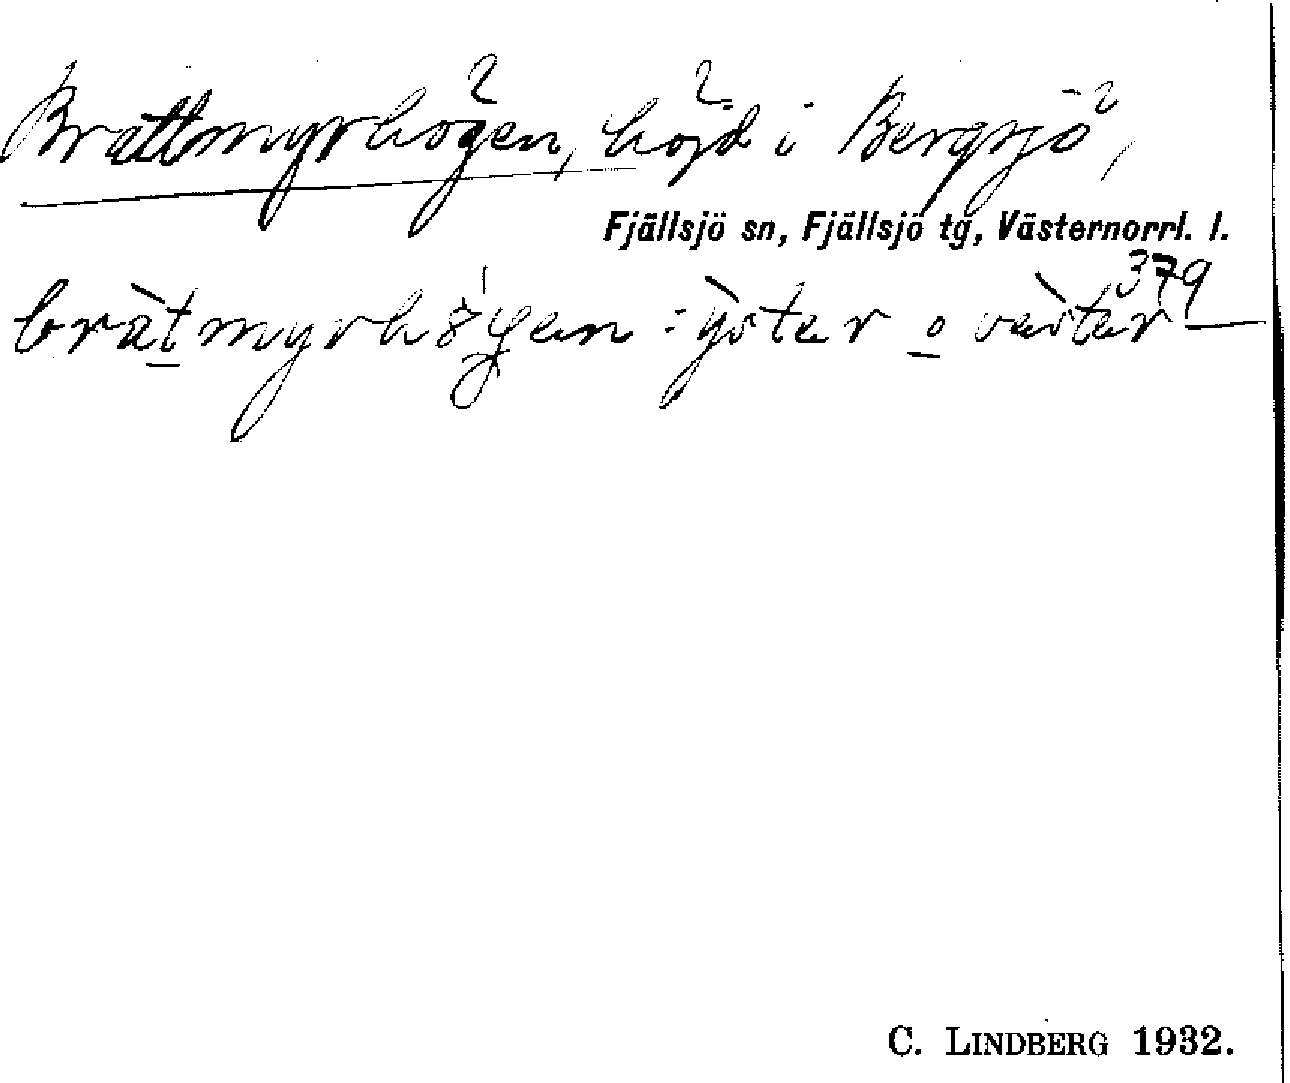 Brattmyrhögen, höjd i Bergsjö,
Fjällsjö sn, Fjällsjö tg, Västernorrl. l.
379
bràtmyrhö́gen : ỳster o vàster —
C. LINDBERG 1932.